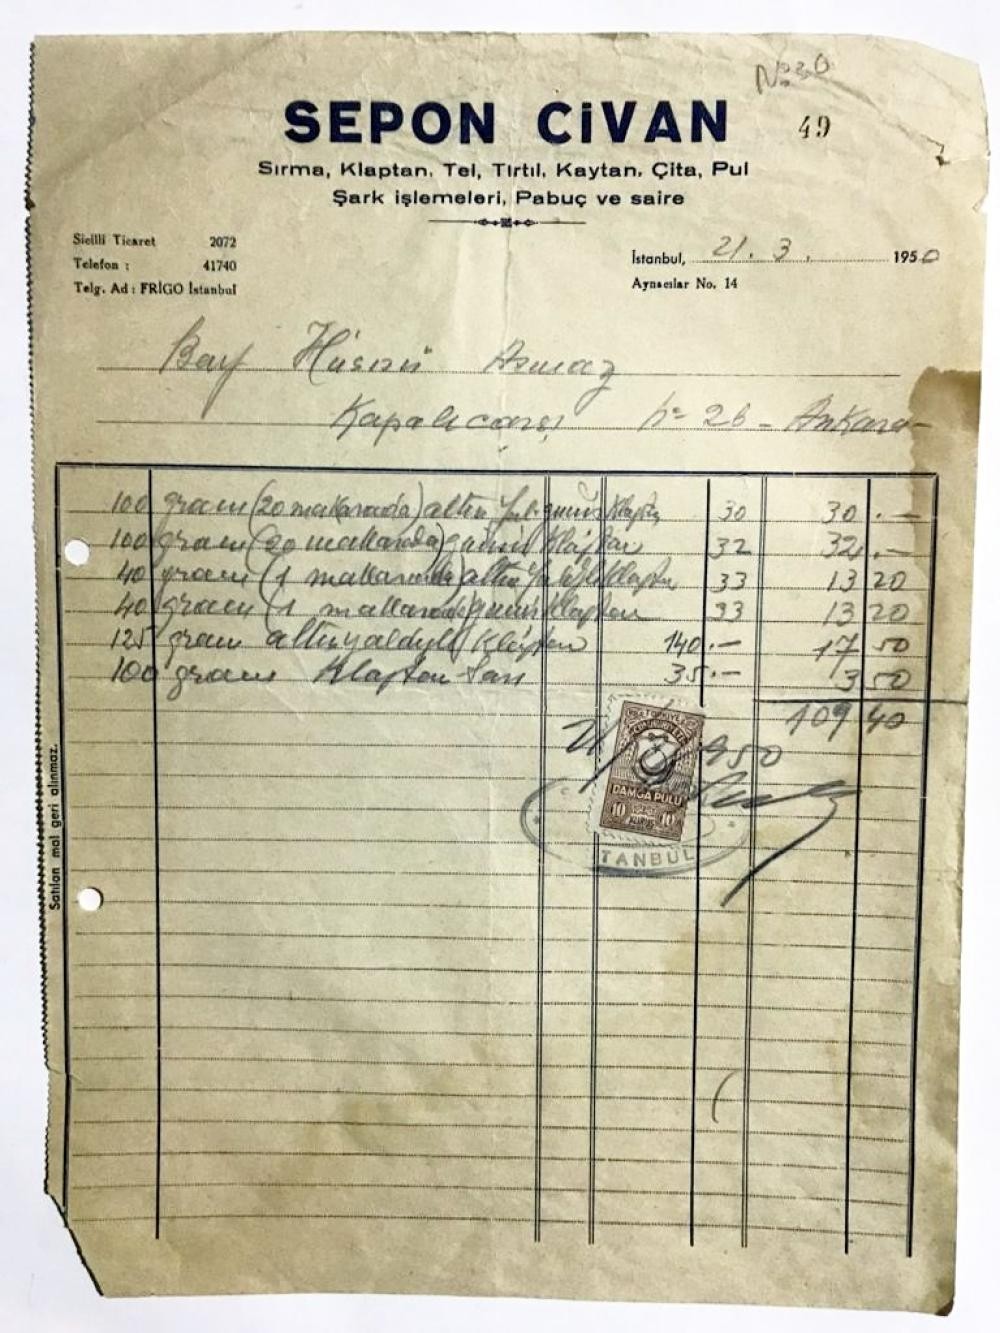 No 30
SEPON CİVAN 49
Sırma, Klaptan, Tel, Tırtıl, Kaytan, Çita, Pul
Şark işlemeleri, Pabuç ve saire
Sicilli Ticaret 2072
Telefon : 41740
Telg. Ad : FRİGO İstanbul
İstanbul, 21. 3. 1950
Aynacılar No. 14
Bay Hüsnü
Kapalıcarşı No 26 - Ankara
100 gram (20 makarada) altın 30 30.-
100 gram (20 makarada) gümüş Klaptan 32 32.-
40 gram (1 makarada) altın 33 13 20
40 gram (1 makarada) gümüş Klaptan 33 13 20
125 gram altın yaldızlı Klaptan 140.- 17 50
100 gram Klaptan Sarı 35.- 3 50
109 40
TÜRKİYE
CUMHURİYETİ
DAMGA PULU
10 KURUŞ 10
950
TANBUL
Satılan mal geri alınmaz.